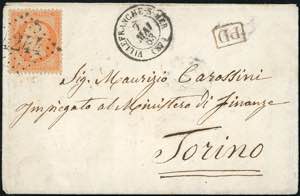 VILLEFRANCHE-S-MER
7
MAI
PD
Sig. Maurizio Carossini
Impiegato al Ministero di Finanze
Torino